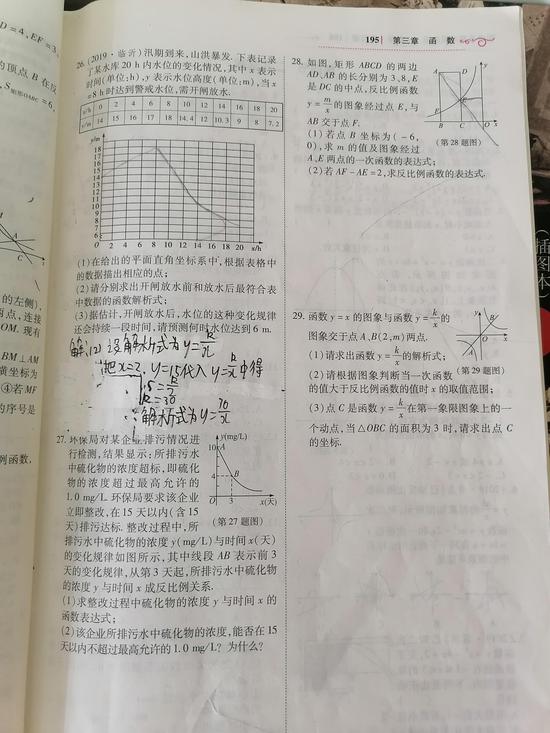 195 第三章 函 数
D=4,EF=3,
的顶点 B 在反
S矩形OABC=6,
的左侧),
两点,连接
OM. 现有
BM⊥AM
横坐标为
④若MF
的序号是
例函数.
26. (2019·临沂)汛期到来,山洪暴发. 下表记录
了某水库 20 h 内水位的变化情况,其中 x 表示
时间(单位:h),y 表示水位高度(单位:m),当 x
=8 h 时达到警戒水位,需开闸放水.
x/h 0 2 4 6 8 10 12 14 16 18 20
y/m 14 15 16 17 18 14.4 12 10.3 9 8 7.2
y/m
18
17
16
15
14
13
12
11
10
9
8
7
6
O 2 4 6 8 10 12 14 16 18 20 x/h
(1)在给出的平面直角坐标系中,根据表格中
的数据描出相应的点;
(2)请分别求出开闸放水前和放水后最符合表
中数据的函数解析式;
(3)据估计,开闸放水后,水位的这种变化规律
还会持续一段时间,请预测何时水位达到 6 m.
解:(2)设解析式为y=k/x
把x=2,y=15代入y=k/x中得
15=k/2
k=30
∴解析式为y=
27. 环保局对某企业排污情况进
行检测,结果显示:所排污水
中硫化物的浓度超标,即硫化
物的浓度超过最高允许的
1.0 mg/L. 环保局要求该企业
立即整改,在 15 天以内(含 15
天)排污达标. 整改过程中,所
排污水中硫化物的浓度 y(mg/L)与时间 x(天)
的变化规律如图所示,其中线段 AB 表示前 3
天的变化规律,从第 3 天起,所排污水中硫化物
的浓度 y 与时间 x 成反比例关系.
(1)求整改过程中硫化物的浓度 y 与时间 x 的
函数表达式;
(2)该企业所排污水中硫化物的浓度,能否在 15
天以内不超过最高允许的 1.0 mg/L? 为什么?
y(mg/L)
10 A
4 B
O 3 x(天)
(第 27 题图)
28. 如图,矩形 ABCD 的两边
AD、AB 的长分别为 3、8,E
是 DC 的中点,反比例函数
y=m/x的图象经过点 E,与
AB 交于点 F.
(1)若点 B 坐标为(-6,
0),求 m 的值及图象经过
A、E 两点的一次函数的表达式;
(2)若 AF-AE=2,求反比例函数的表达式.
A D y
F E
B C O x
(第 28 题图)
29. 函数 y=x 的图象与函数 y=k/x的
图象交于点 A、B(2,m)两点.
(1)请求出函数 y=k/x的解析式;
(2)请根据图象判断当一次函数
的值大于反比例函数的值时 x 的取值范围;
(3)点 C 是函数 y=k/x在第一象限图象上的一
个动点,当△OBC 的面积为 3 时,请求出点 C
的坐标.
y B
O x
A
(第 29 题图)
(插图本)